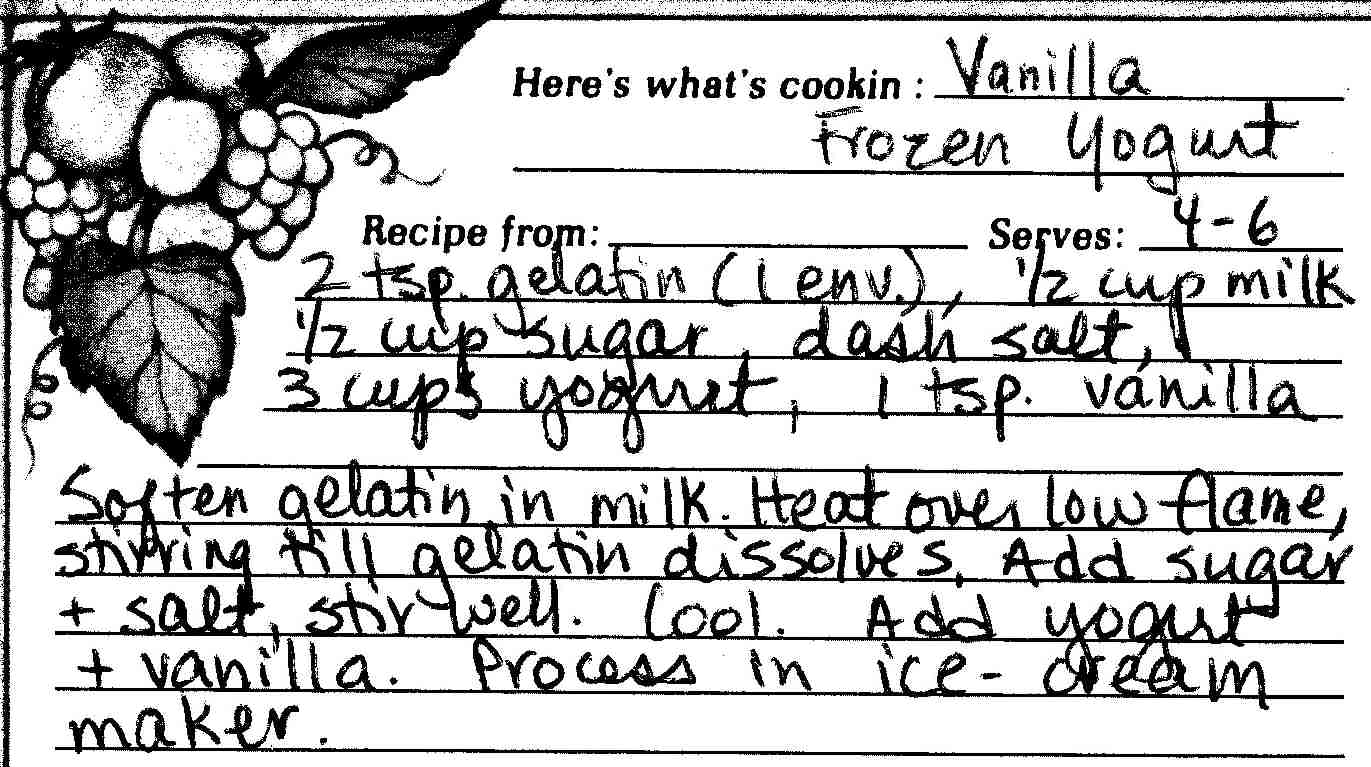 Here's what's cookin: Vanilla
Frozen Yogurt
Recipe from: Serves: 4-6
2 tsp. gelatin (1 env.), 1/2 cup milk
1/2 cup sugar, dash salt,
3 cups yogurt, 1 tsp. vanilla
Soften gelatin in milk. Heat over low flame,
stirring till gelatin dissolves. Add sugar
+ salt, stir well. Cool. Add yogurt
+ vanilla. Process in ice-cream
maker.